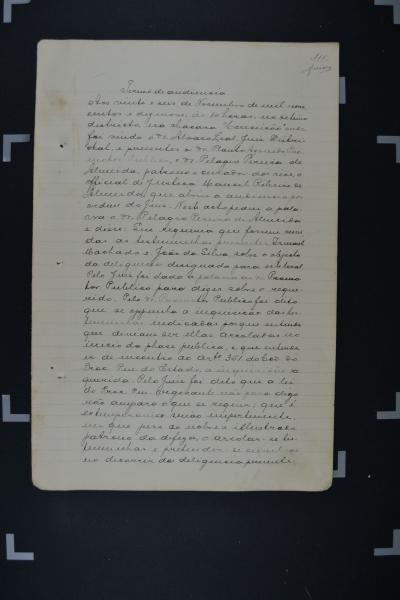 111
Termo de audiencia
Aos vinte e seis de Novembro de mil nove
centos e dezenove, ás 10 horas, no setimo
districto, na chacara "Conceição" onde
foi vindo o Dr. Alvaro Leal, Juiz Distri
ctal, e presentes o Dr. Plauto Azevedo Pro
motor Publico, e Dr. Pelagio Pereira de
Almeida, patrono e curador dos reos, o
official de Justiça Manoel Ribeiro de
Almeida, que abriu a audiencia por
ordem do Juiz. Neste acto pediu a pala
vra o Dr. Pelagio Pereira de Almeida
e disse: Que requeria que fossem ouvi
das as testemunhas presentes
Machado e João da Silva sobre o objecto
da diligencia designada para este local.
Pelo Juiz foi dada a palavra ao Dr. Promo
tor Publico para dizer sobre o reque
rido. Pelo Dr. Promotor Publico foi dito
que se oppunha a inquirição das tes
temunhas indicadas porque entende
que deviam ser ellas arroladas no
inicio da phase publica, e que entende
ir de encontro ao Artº 351 do Cod. do
Proc. Pen. do Estado, a inquirição re
querida. Pelo Juiz foi dito que a lei
do Proc. Pen.
não ampara o que se requer, que é
extemporaneo senão impertinente,
illustrado
patrono da defeza, o arrolar-se tes
temunhas e pretender-se
no decorrer da diligencia presente.